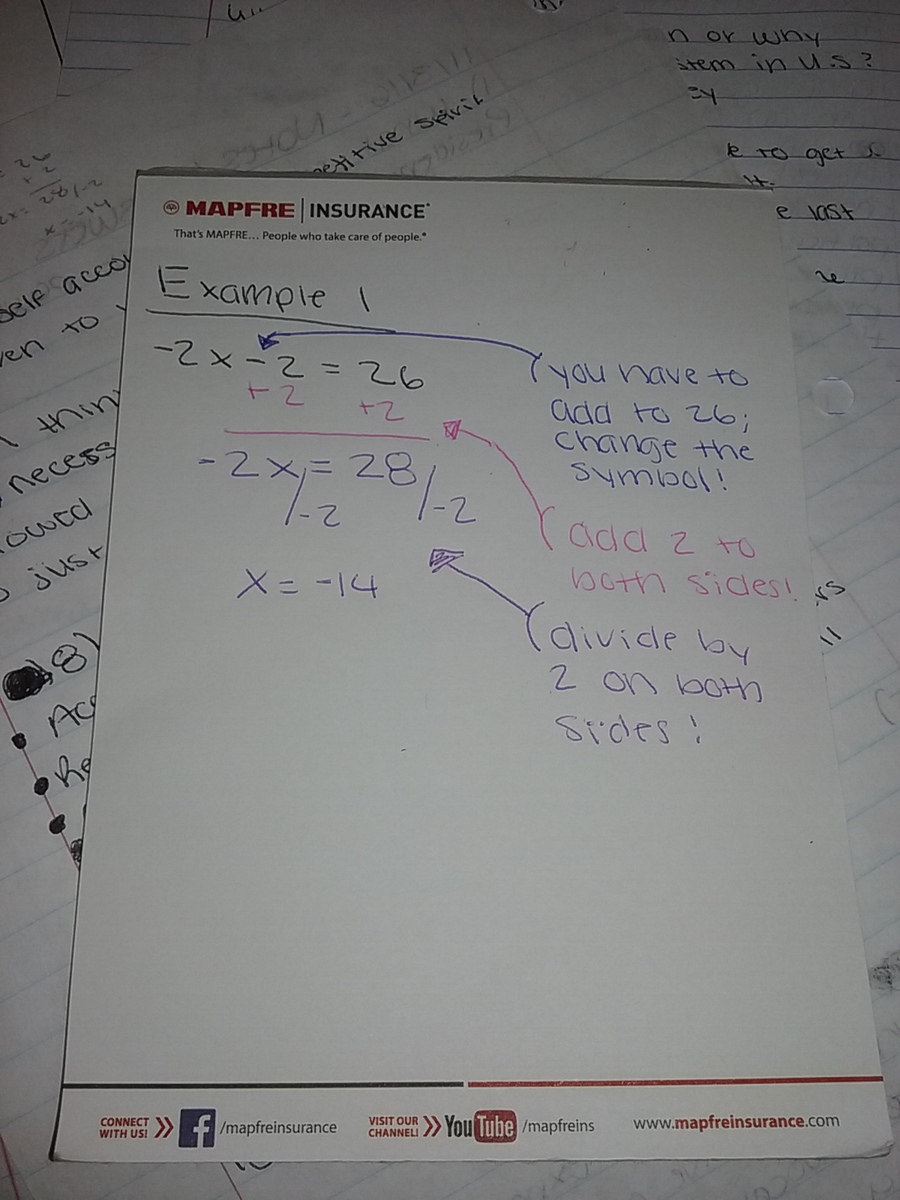 n or why
stem in U.S?
ey
petitive spirit
e to get
it.
e last
26
+ 2
28/-2
x = -14
MAPFRE | INSURANCE
That's MAPFRE... People who take care of people.®
self acco
en to
I thin
necess
lowed
just
8)
Acc
Re
Example 1
-2x - 2 = 26
+2 +2
-2x = 28
/-2 /-2
x = -14
you have to
add to 26;
change the
symbol!
add 2 to
both sides!
divide by
2 on both
sides!
CONNECT
WITH US! >> f /mapfreinsurance
VISIT OUR
CHANNEL! >> YouTube /mapfreins
www.mapfreinsurance.com